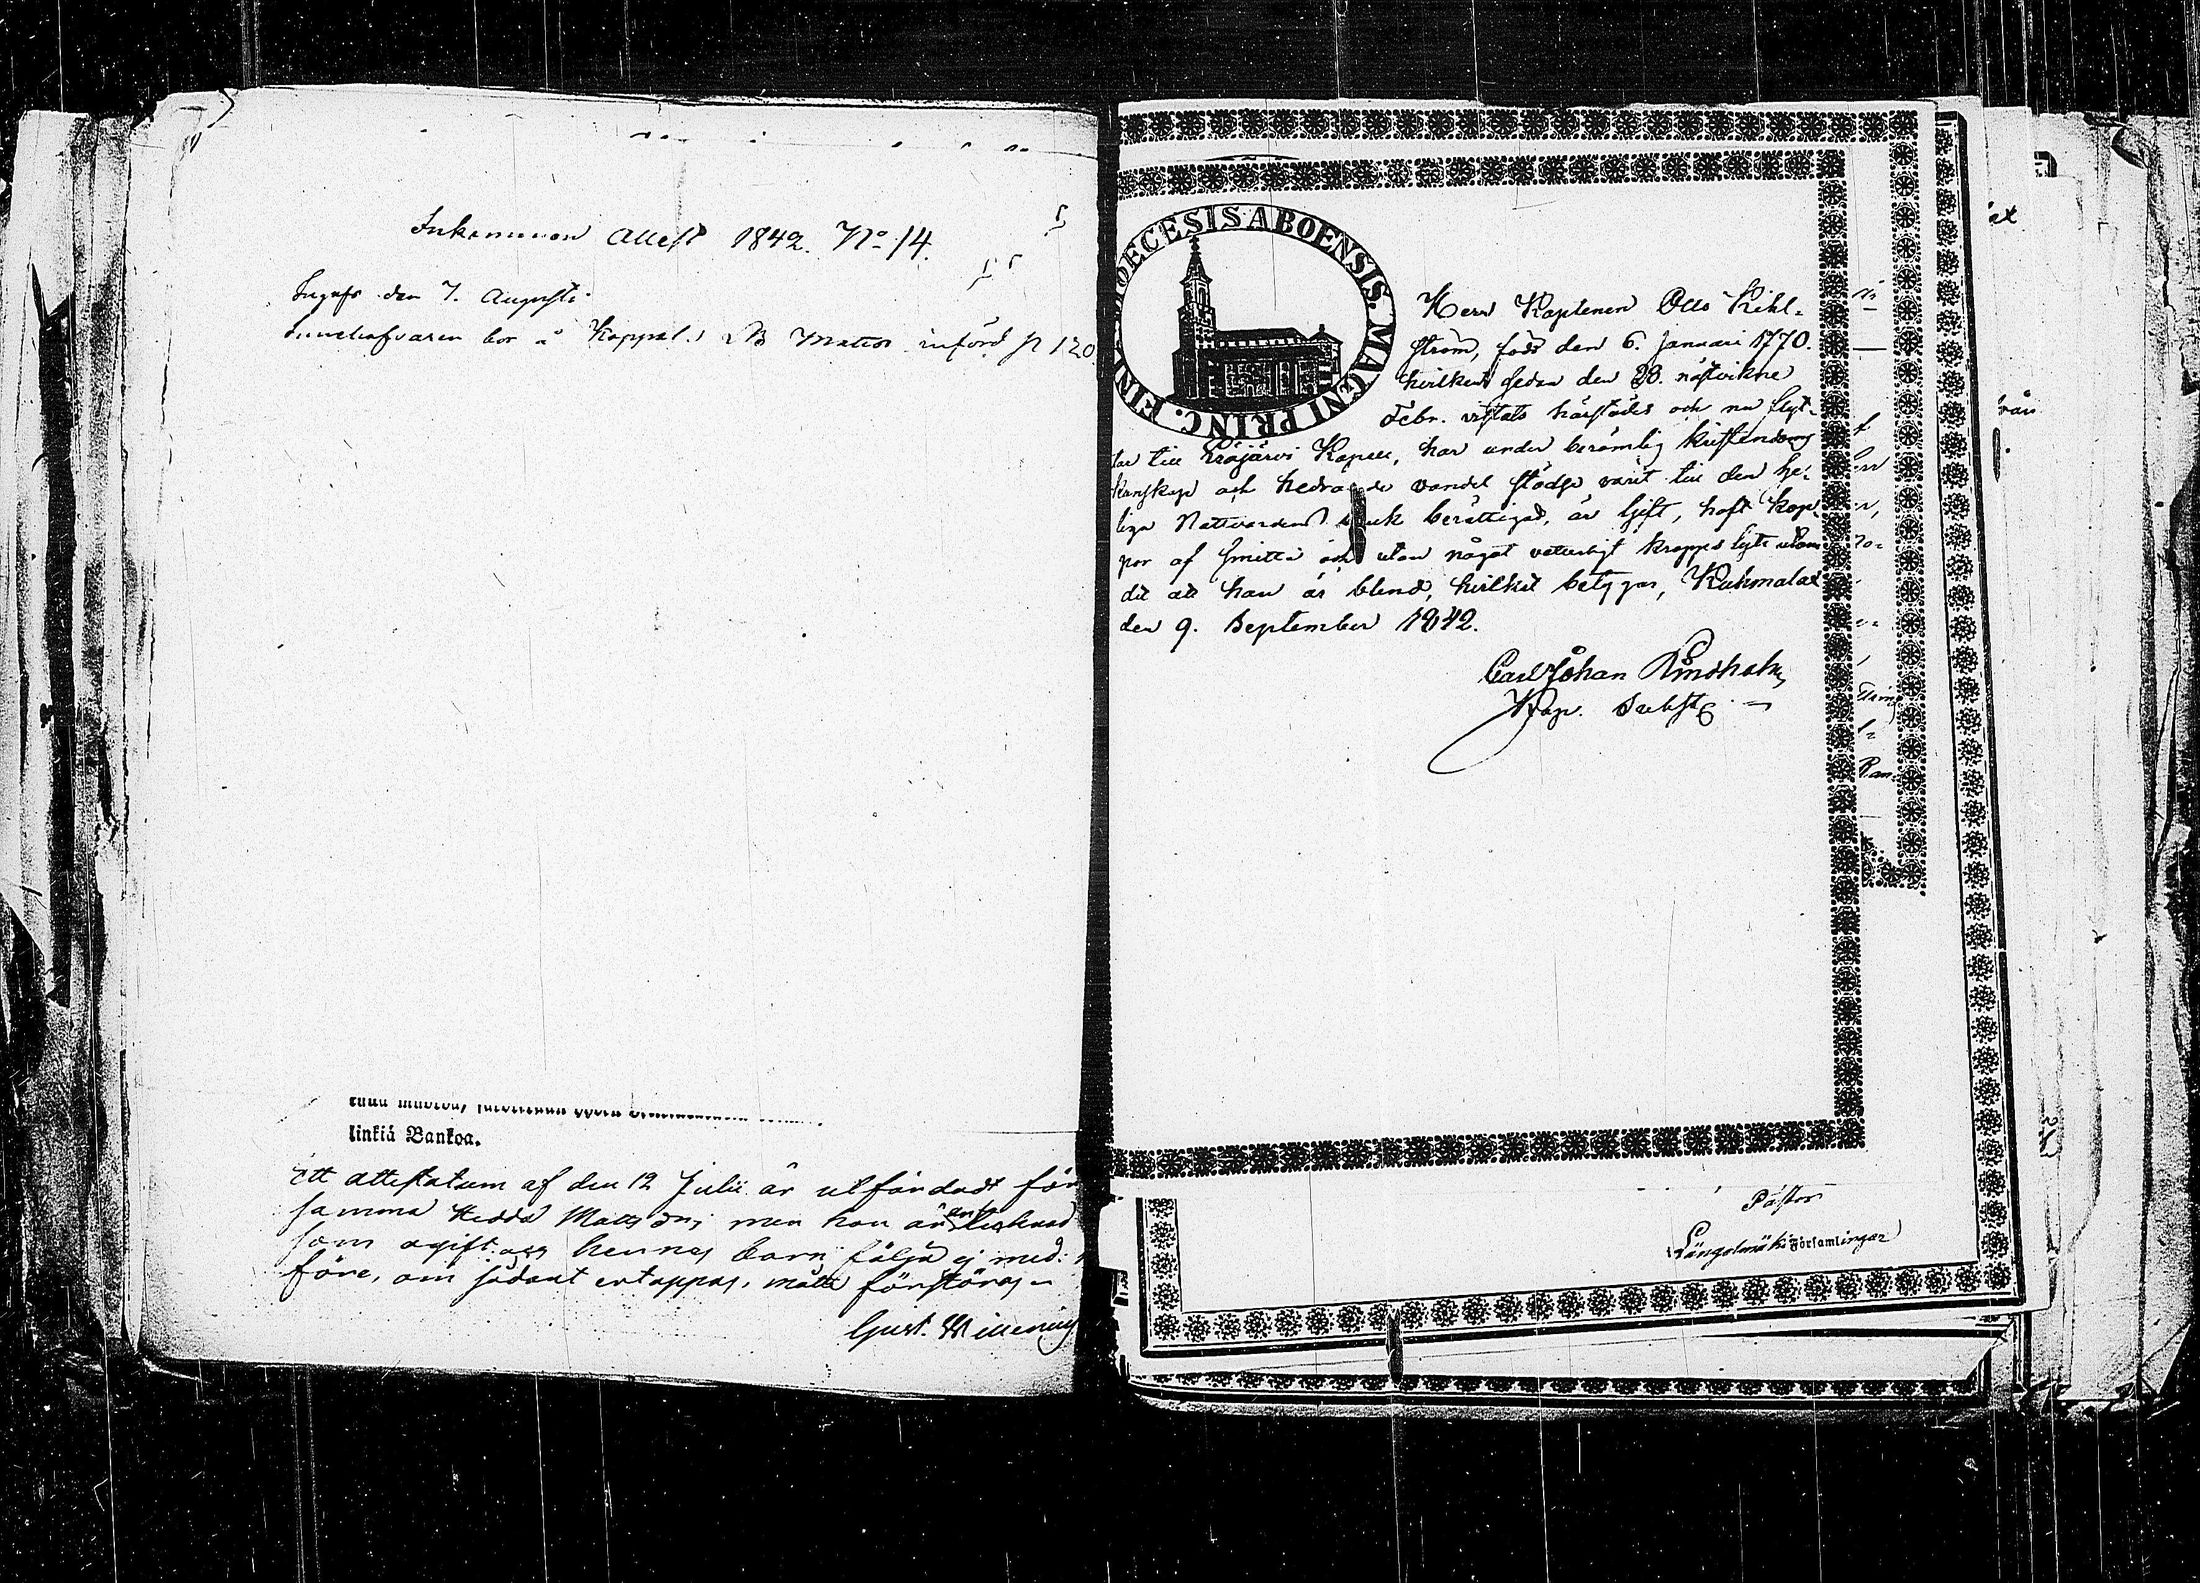 Inkommen Attest 1842. No 14.
Ingafs den 7. Augusti.
bor å införd p 120
linkiä Bankoa.
Ett attestatum af den 12 Julii är utfärdadt för
samma Hedda Matts dr, men hon är
som ogift. och hennes barn följa ej med:
före, om sådant ertappas, måtte förstöras
Gust.
DIOECESIS ABOENSIS. MAGNI PRINC. FIN
Herr Kaptenen Otto Kihl-
ström, född den 6. Januari 1770.
hvilken sedan den 28. nästvikne
Febr. vistats härstädes och nu flyt-
tar till Eräjärvi Kapell, har under berömlig kristendoms
kunskap och hedrande vandel städse varit till den he-
liga Nattvardens bruk berättigad, är gift, haft kop-
por af smitta och utan något veterligt kroppslyte utom
det att han är blind, hvilket betygar, Kuhmalax
den 9. September 1842.
Carl Johan Lindholm
Kap.
Pastor
Längelmäki Församlingar